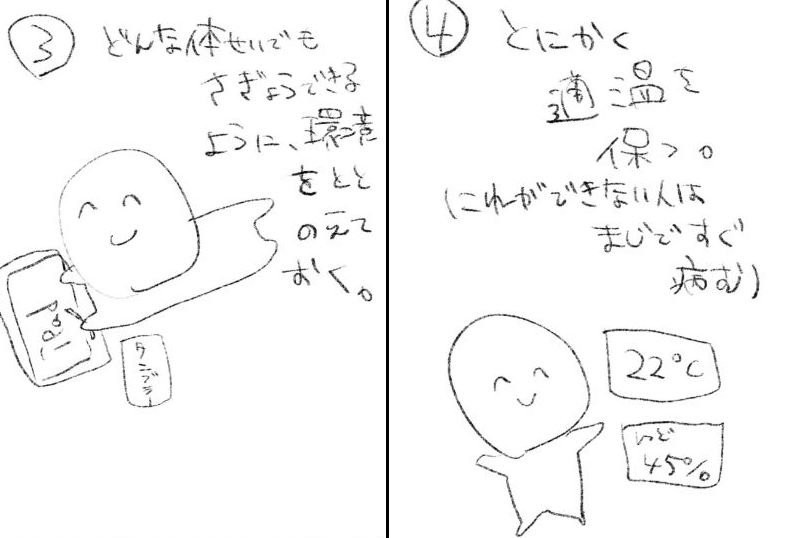 ③ どんな体せいでも
さぎょうできる
ように、環境
をとと
のえて
おく。
iPad
④ とにかく
適温を
保つ。
(これができない人は
まじですぐ
病む)
22℃
しつど
45%